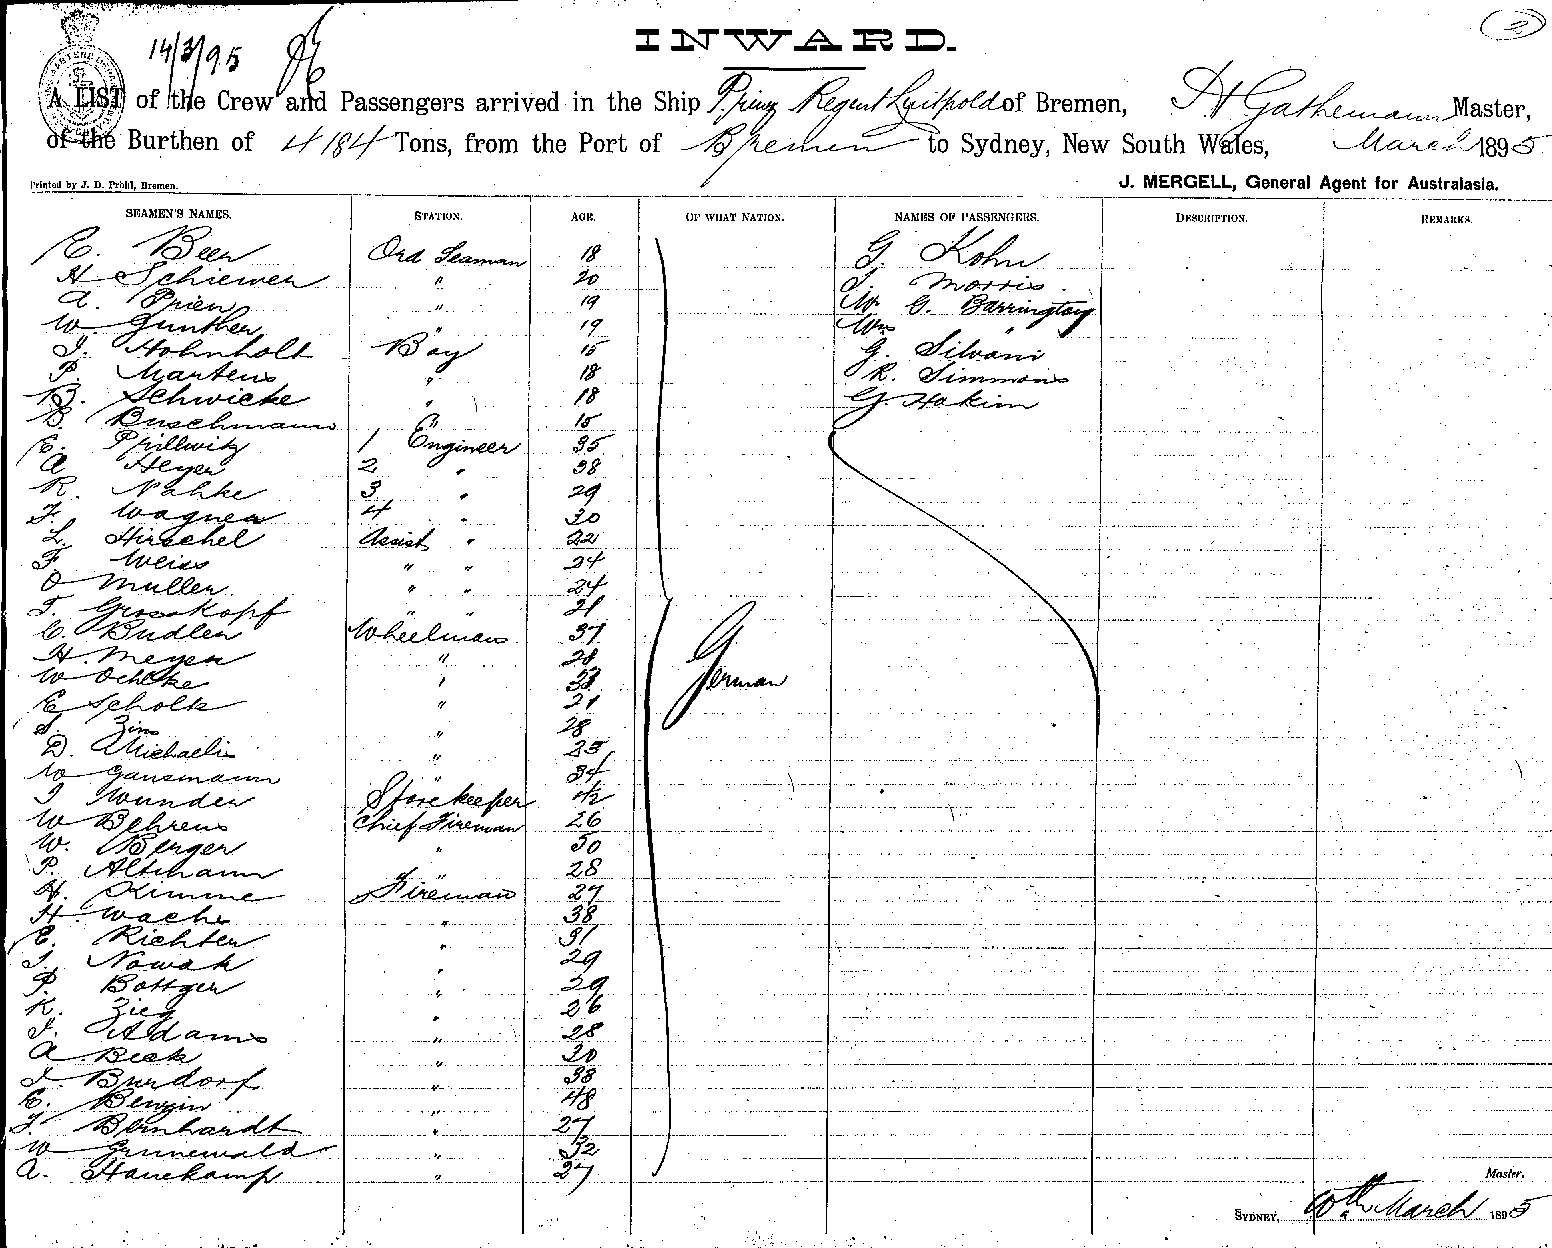 (2)
14/3/95
INWARD.
A LIST of the Crew and Passengers arrived in the Ship Prinz Regent Luitpold of Bremen, H Gathemann Master,
of the Burthen of 4184 Tons, from the Port of Bremen to Sydney, New South Wales, March 1895
Printed by J. D. Prohl, Bremen. J. MERGELL, General Agent for Australasia.
SEAMEN'S NAMES. STATION. AGE. OF WHAT NATION. NAMES OF PASSENGERS. DESCRIPTION. REMARKS.
E. Beer Ord Seaman 18 G. Kohn
H Schiewer " 20 Morris
A. Prien " 19 Mr G. Barrington
W Gunther " 19 Mrs "
J. Hohnholt Boy 15 G. Silvani
P. Martens " 18 R. Simmons
B. Schwicke " 18 G. Hakim
B. Buschmann " 15
E. Prillwitz 1 Engineer 35
A Heyer 2 " 38
R. Nahke 3 " 29
F. Wagner 4 " 30
L. Hirschel Assist " 22
F. Weiss " " 24
O Muller " " 24
F. Grosskopf " " 21
C. Budler Wheelman 37
H. Meyer " 28 German
W Ochlke "
E Scholk " 21
S. Zins " 28
D. Michaelis " 23
W Gansmann " 34
J Wunder Storekeeper 42
W Behrens Chief Fireman 26
W. Berger " 50
P. Altmann " 28
H. Kimme Fireman 27
H. Wache " 38
E. Richter " 31
J. Nowak " 29
P. Bottger " 29
K. Zieg " 26
J. Adams " 28
A Beck " 30
J Burdorf " 38
E. Benzin " 48
F. Bernhardt " 27
W Grunewald " 32
A. Hanekamp " 27
Master.
SYDNEY, 10th March 1895